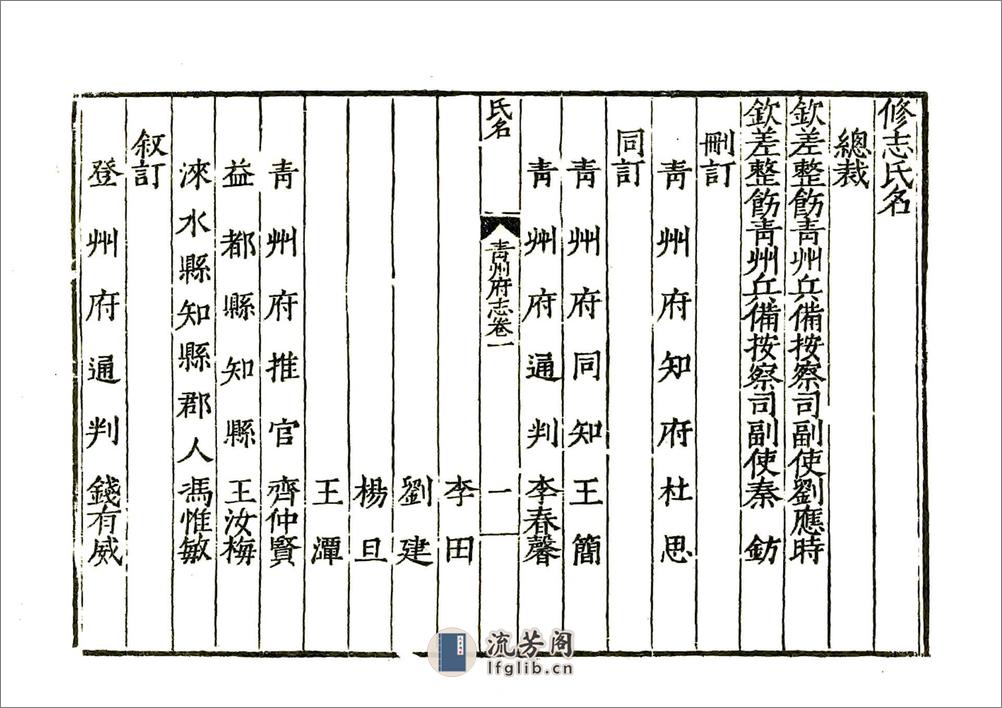 修志氏名
總裁
欽差整飭靑州兵備按察司副使劉應時
欽差整飭靑州兵備按察司副使秦鈁
刪訂
靑州府知府杜思
同訂
靑州府同知王簡
靑州府通判李春馨
氏名
靑州府志卷一
一
李田
劉建
楊旦
王潭
靑州府推官齊仲賢
益都縣知縣王汝梅
淶水縣知縣郡人馮惟敏
叙訂
登州府通判錢有威
流芳阁
lfglib.cn